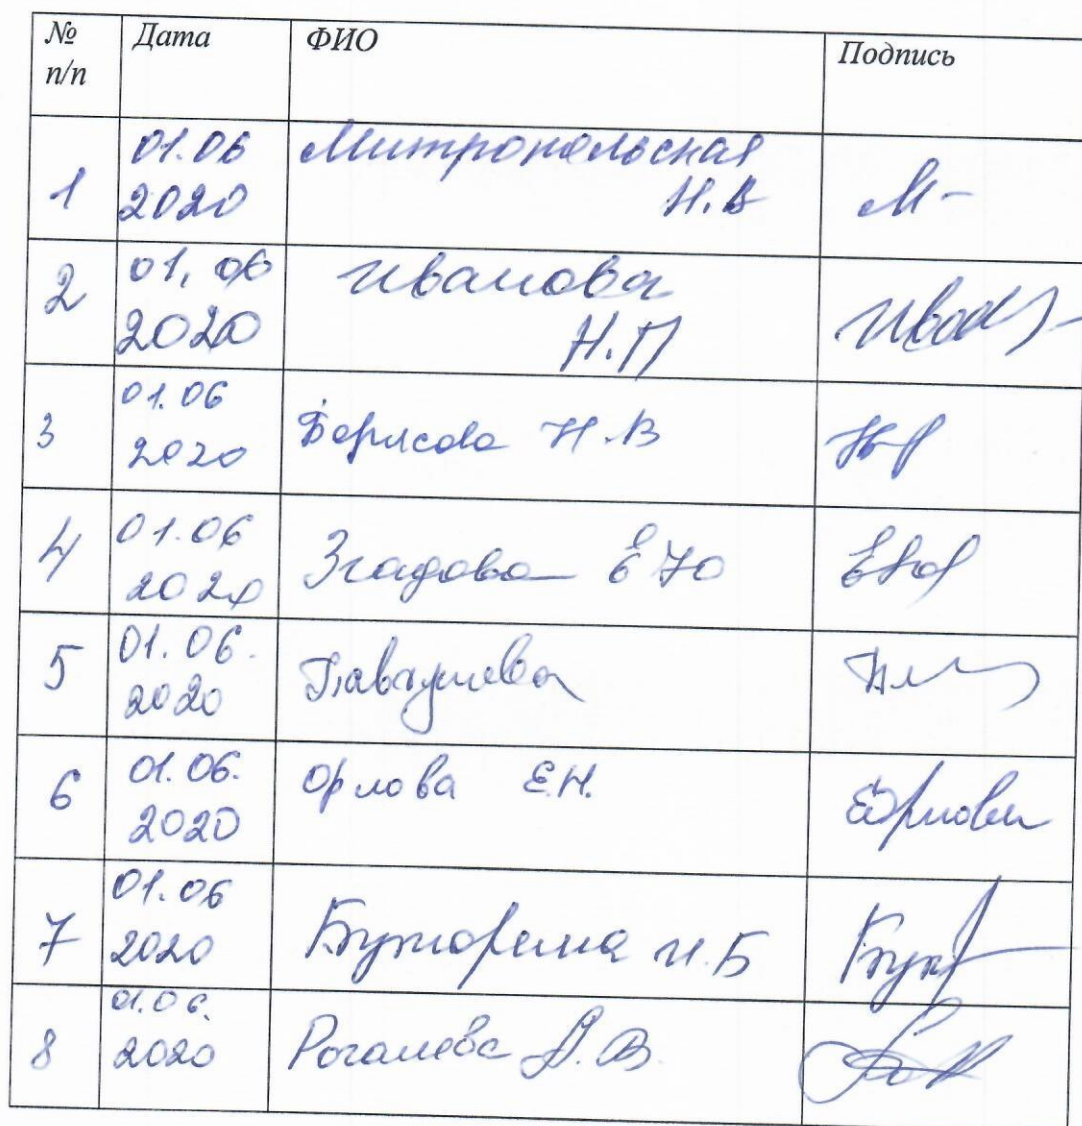 № п/п Дата ФИО Подпись
1 01.06 2020 Митропольская Н.В М-
2 01.06 2020 Иванова Н.П
3 01.06 2020 Борисова Н.В
4 01.06 2020 Згадова Е Ю
5 01.06. 2020
6 01.06. 2020 Орлова Е.Н. ЕОрлова
7 01.06 2020 Буторина И.Б
8 01.06. 2020 Рогалева А.В.